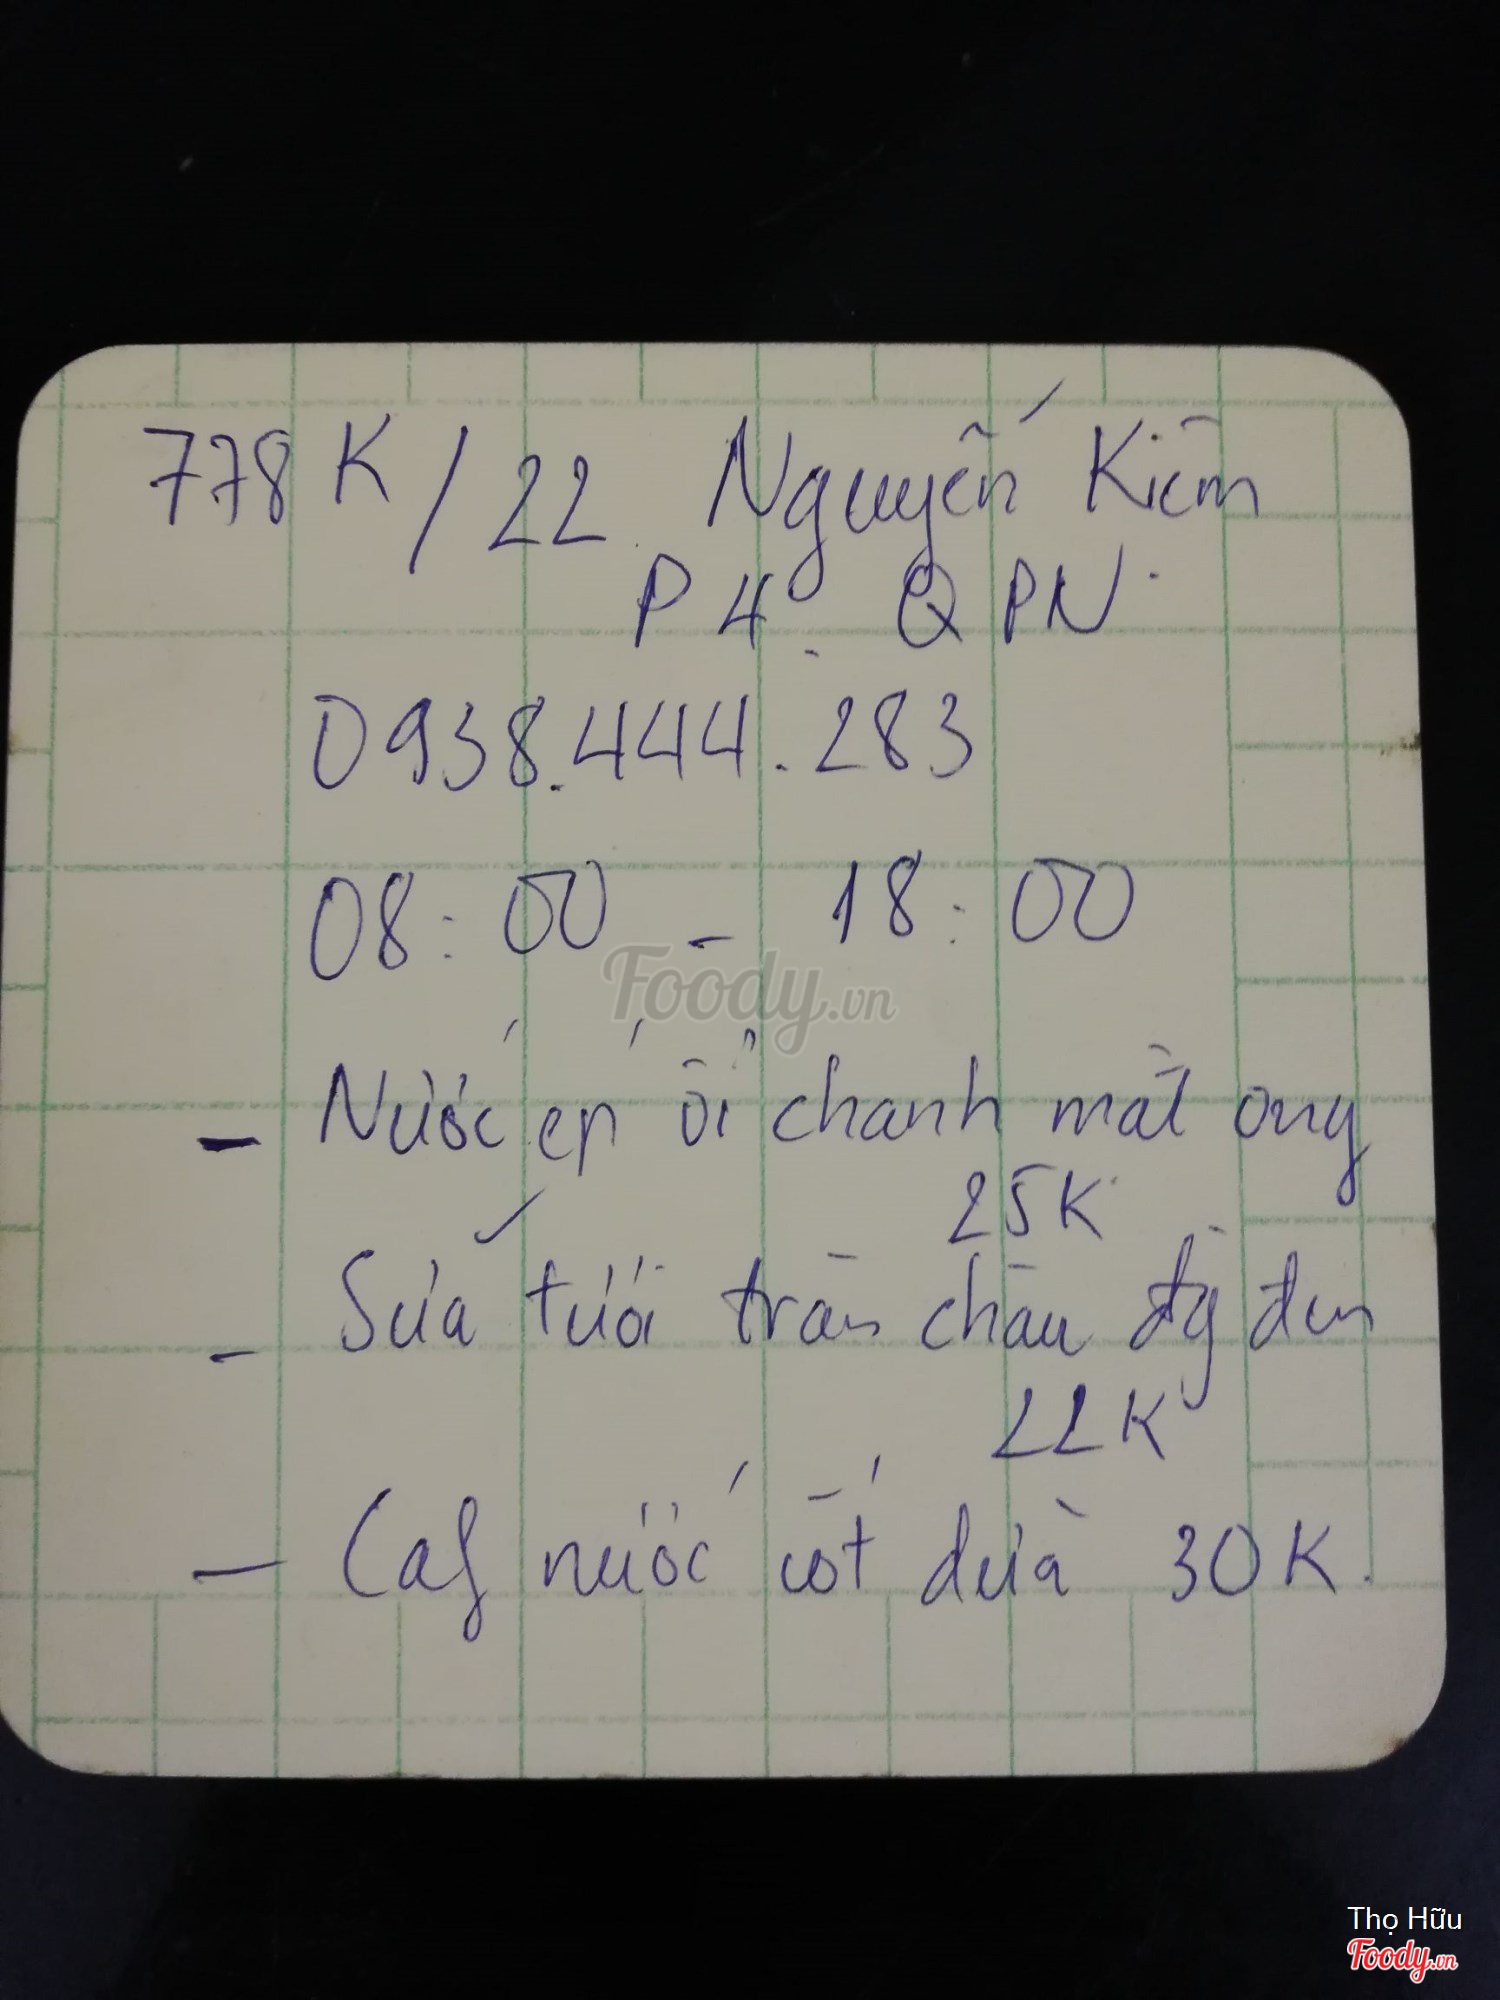 778 K/22 Nguyễn Kiệm
P4. Q PN.
0938.444.283
08:00 - 18:00
- Nước ép ổi chanh mật ong
25K
- Sữa tươi trân châu đg đen
22K
- Caf nước cốt dừa 30K.
Foody.vn
Thọ Hữu
Foody.vn